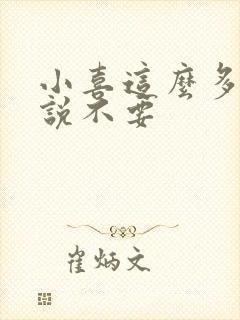 小喜這麼多
說不要
崔炳文